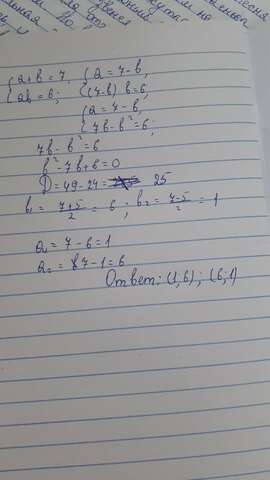 {a+b=7, {a=7-b,
{ab=6; {(7-b) b=6,
{a=7-b,
{7b-b²=6;
7b-b²=6
b²-7b+6=0
D=49-24= 25
b₁= (7+5)/2 = 6 ; b₂= (7-5)/2 = 1
a₁ = 7-6=1
a₂ = 7-1=6
Ответ: (1;6); (6;1)